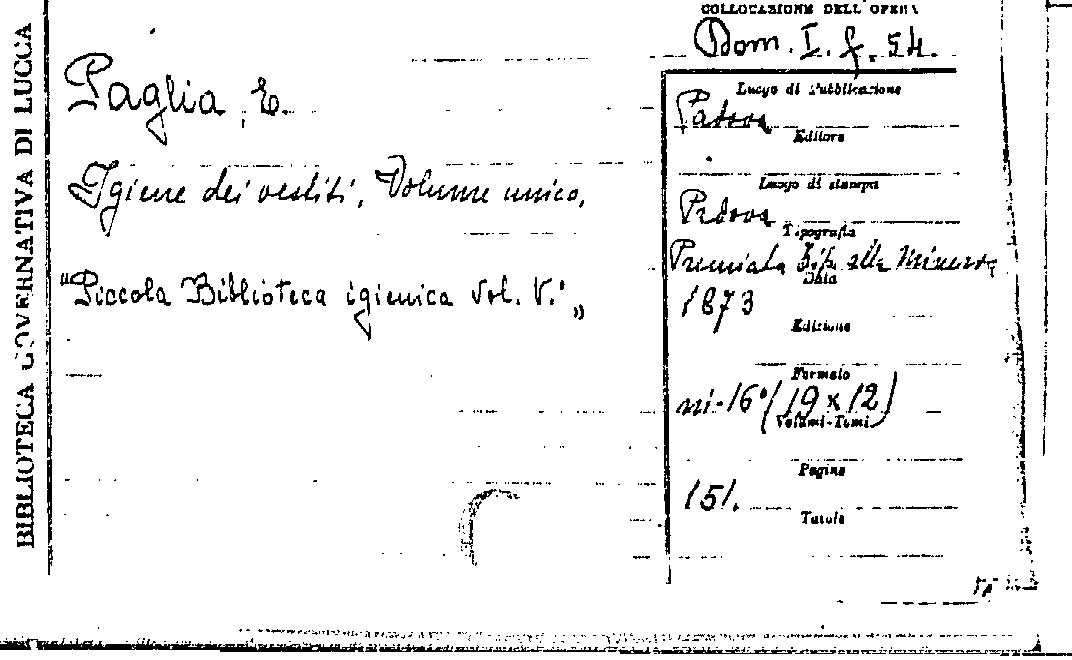 BIBLIOTECA GOVERNATIVA DI LUCCA
COLLOCAZIONE DELL'OPERA
Dom. I. f. 54.
Paglia, E.
Igiene dei vestiti, Volume unico,
"Piccola Biblioteca igienica Vol. V."
Luogo di Pubblicazione
Padova
Editore
Luogo di stampa
Padova
Tipografia
Premiata Tip. alla Minerva
Data
1873
Edizione
Formato
in-16° (19 x 12)
Volumi-Tomi
Pagine
151.
Tavole